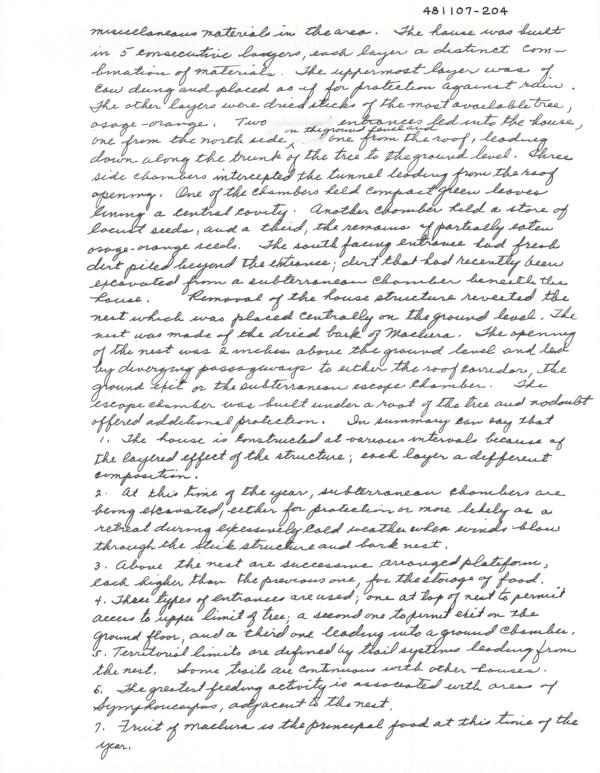 481107-204
miscellaneous materials in the area. The house was built
in 5 consecutive layers, each layer a distinct com-
bination of materials. The uppermost layer was of
cow dung and placed as if for protection against rain.
The other layers were dried sticks of the most available tree,
osage-orange. Two entrances led into the house,
on the ground level and
one from the north side, one from the roof, leading
down along the trunk of the tree to the ground level. Three
side chambers intercepted the tunnel leading from the roof
opening. One of the chambers held compact green leaves
lining a central cavity. Another chamber held a store of
locust seeds, and a third, the remains of partially eaten
osage-orange seeds. The south facing entrance had fresh
dirt piled beyond the entrance; dirt that had recently been
excavated from a subterranean chamber beneath the
house. Removal of the house structure revealed the
nest which was placed centrally on the ground level. The
nest was made of the dried bark of Maclura. The opening
of the nest was 2 inches above the ground level and led
by diverging passageways to either the roof corridor, the
ground exit or the subterranean escape chamber. The
escape chamber was built under a root of the tree and no doubt
offered additional protection. In summary can say that
1. The house is constructed at various intervals because of
the layered effect of the structure; each layer a different
composition.
2. At this time of the year, subterranean chambers are
being excavated, either for protection or more likely as a
retreat during excessively cold weather when winds blow
through the stick structure and bark nest.
3. Above the nest are successive arranged platform,
each higher than the previous one, for the storage of food.
4. Three types of entrances are used; one at top of nest to permit
access to upper limit of tree; a second one to permit exit on the
ground floor, and a third one leading into a ground chamber.
5. Territorial limits are defined by trail systems leading from
the nest. Some trails are continuous with other houses.
6. The greatest feeding activity is associated with areas of
Symphoricarpos, adjacent to the nest.
7. Fruit of maclura is the principal food at this time of the
year.